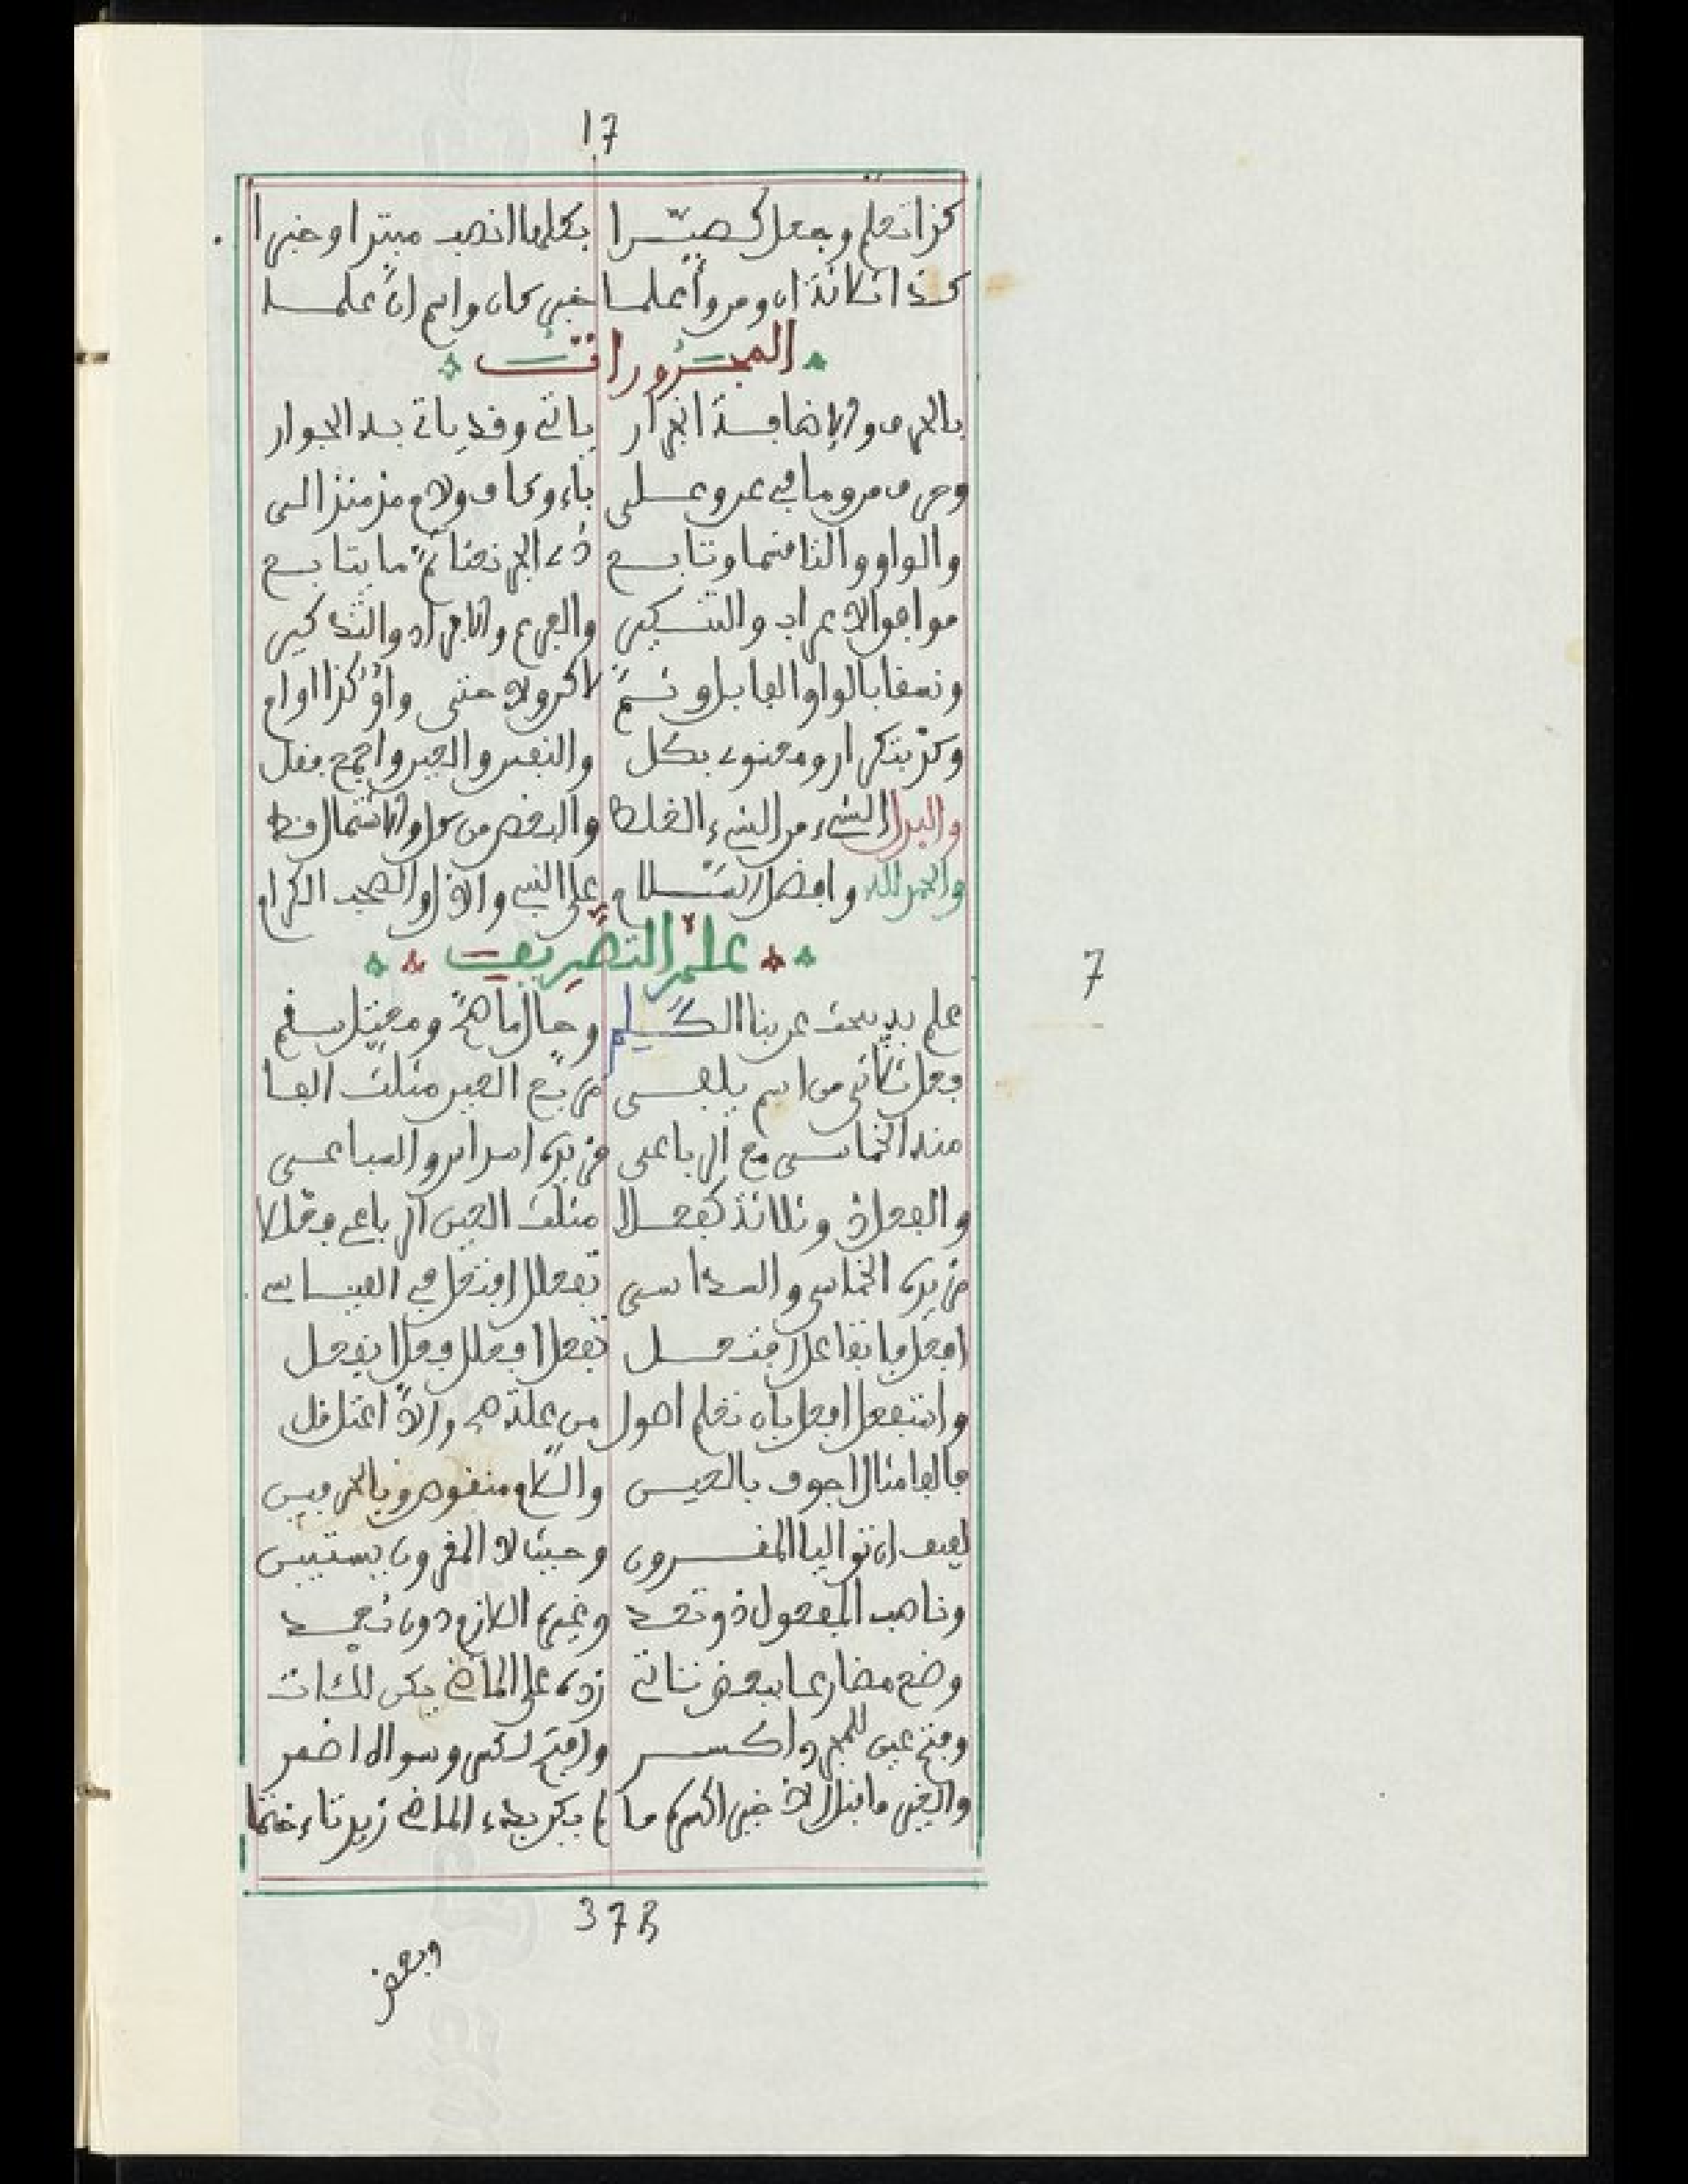 17
كذا تعلم وجعل كصيّرا بكلها انصب مبتدا وخبرا
كذا ثلاثة ان ومر واعلما خبر كان واسم ان علما
المجرورات
بالحرف والإضافة انجرار ياتي وقد ياتي به الجوار
وحرف من وما في عن وعلى باء وكاف ولام مذ منذ الى
والواو والتا قسما وتابع ذي الجر نعتا ثم ما يتابع
موافق الاعراب والتنكير والفرع والافراد والتذكير
ونسقا بالواو والفا بل وثم لاكن ولا حتى واو كذا ام
وكد بتكرار ومعنوي بكل والنفس والعين واجمع فقل
والبدل الشيء من الشيء الغلط والبعض من كل والاشتمال قط
والحمد لله وافضل السلام على النبي والال والصحب الكرام
علم التصريف
علم به يبحث عن بنا الكلم وحال ما صح ومعتل سقم
فعل ثلاثي من اسم يلفى مربع العين مثلث الفا
منه الخماسي مع الرباعي مزيده السداس والسباعي
والفعل ذو ثلاثة كفعلا مثلث العين الرباعي فعللا
مزيده الخماسي والسداسي تفعلل افعنلل في القياس
افعل فاعل تفاعل افتعل تفعل افعلل فعل انفعل
واستفعل افعل بان تعلم اصول من علة صح والا اعتل قل
فالفا مثال اجوف بالعين واللام منقوص وبالحرفين
لفيف ان تواليا المقرون وحيث لا المفروق يستبين
وناصب المفعول ذو تعد وغيره اللازم دون تعد
وضع مضارعا ببعض نأتي زده على الماضي يكن للآت
وفتح عين للمجرد اكسر وافتح لكن وسواه اضمر
والغير ما قبل الاخير اكسره ما لم يكن بدء الماضي زيد تاء ختما
37B
وبعض
7